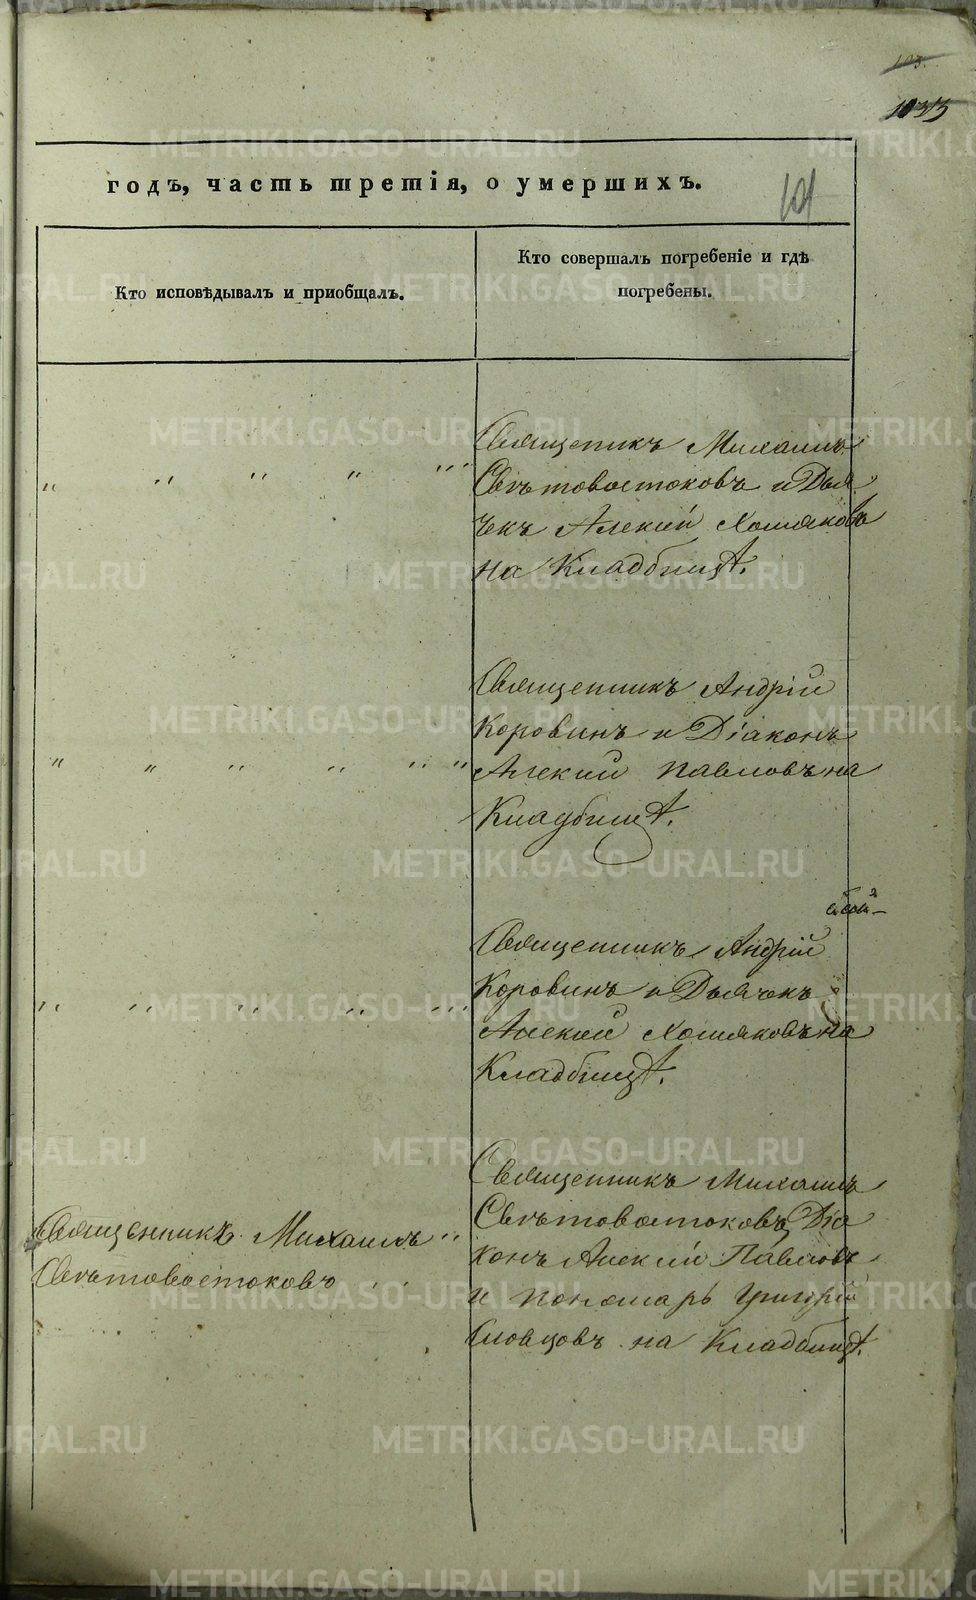 103.
1033
годъ, часть третія, о умершихъ.
101
Кто исповѣдывалъ и приобщалъ.
Кто совершалъ погребеніе и гдѣ
погребены.
Священникъ Михаилъ
Свѣтовостоковъ и Дья
чекъ Алексий Хомяковъ
на Кладбищѣ.
Священникъ Андрій
Коровинъ и Діаконъ
Алексий Павловъ на
Кладбищѣ.
Священникъ Андрій
Коровинъ и Дьячекъ
Алексий Хомяковъ на
Кладбищѣ.
Священникъ Михаилъ
Свѣтовостоковъ
Священникъ Михаилъ
Свѣтовостоковъ Діа
конъ Алексий Павловъ
и пономарь Григорій
Словцовъ на Кладбищѣ.
METRIKI.GASO-URAL.RU